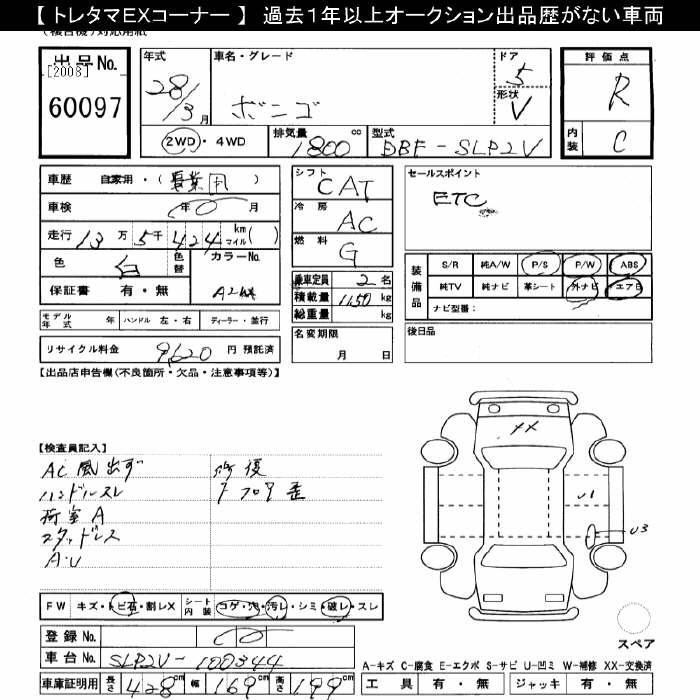 【トレタマEXコーナー】 過去1年以上オークション出品歴がない車両
出品No. [2008] 60097
年式 28/3月
車名・グレード ボンゴ
ドア 5
形状 V
評価点 R
内装 C
2WD・4WD
排気量 1800 cc
型式 DBF-SLP2V
車歴 自家用・(事業用)
車検 年 月
走行 13万5千424 km マイル( )
色 白 色替 カラーNo. A2W
保証書 有・無
シフト CAT
冷房 AC
燃料 G
乗車定員 2名
積載量 1150 kg
総重量 kg
セールスポイント
ETC
装備品 S/R 純A/W P/S P/W ABS
純TV 純ナビ 革シート 外ナビ エアB
ナビ型番:
モデル年式 年 ハンドル 左・右 ディーラー・並行
名変期限 月 日
後日品
リサイクル料金 9,620 円 預託済
【出品店申告欄(不良箇所・欠品・注意事項等)】
【検査員記入】
AC風出ず 修復
ハンドルスレ Fフロア歪
荷室A
スタッドレス
A・U
XX
U1
U3
FW キズ・トビ石・割レX シート内装 コゲ・穴・汚レ・シミ・破レ・スレ
登録No.
車台No. SLP2V-100344
車庫証明用 長さ 428cm 幅 169cm 高さ 199cm
スペア
A-キズ C-腐食 E-エクボ S-サビ U-凹ミ W-補修 XX-交換済
工具 有・無 ジャッキ 有・無